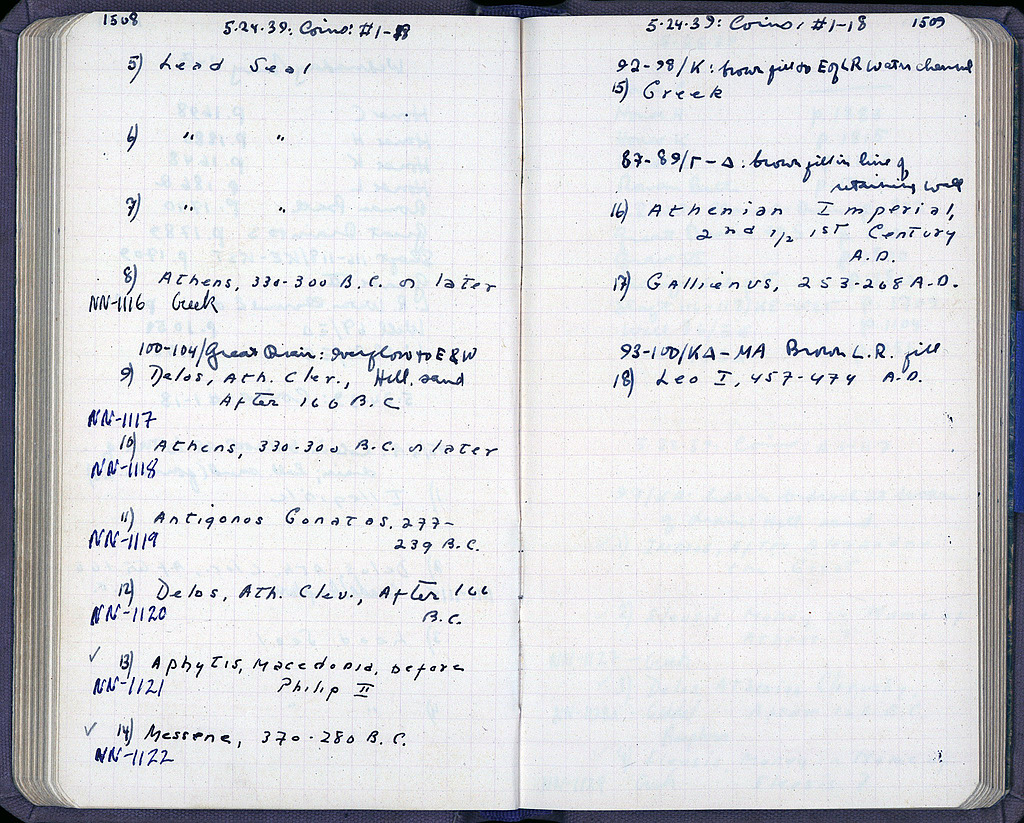 1508
5.24.39: Coins: #1-18
5) Lead Seal
6) " "
7) " "
8) Athens, 330-300 B.C. or later
NN-1116 Greek
100-104/Great Drain: overflow to E & W
9) Delos, Ath. Cler., Hell. sand
After 166 B.C
NN-1117
10) Athens, 330-300 B.C. or later
NN-1118
11) Antigonos Gonatas, 277-
NN-1119 239 B.C.
12) Delos, Ath. Cler., After 166
NN-1120 B.C.
✓ 13) Aphytis, Macedonia, before
NN-1121 Philip II
✓ 14) Messene, 370-280 B.C.
NN-1122
5.24.39: Coins: #1-18 1509
92-98/K: brown fill to E of LR water channel
15) Greek
87-89/Γ-Δ: brown fill in line of
retaining wall
16) Athenian Imperial,
2nd 1/2 1st Century
A.D.
17) Gallienus, 253-268 A.D.
93-100/ΚΔ-ΜΑ Brown L.R. fill
18) Leo I, 457-474 A.D.